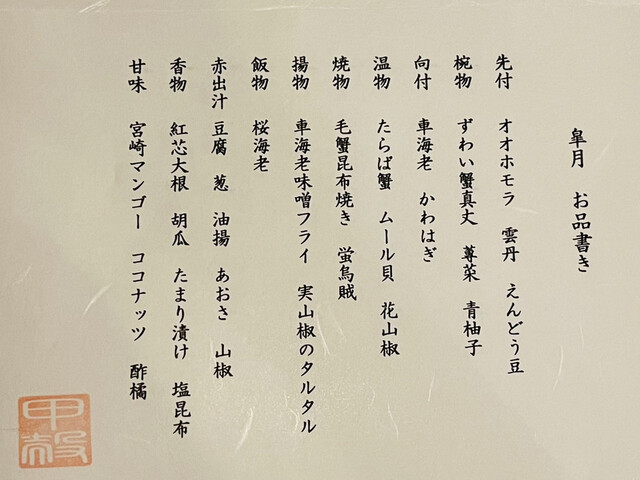 皐月　お品書き
先付　オオホモラ　雲丹　えんどう豆
椀物　ずわい蟹真丈　蓴菜　青柚子
向付　車海老　かわはぎ
温物　たらば蟹　ムール貝　花山椒
焼物　毛蟹昆布焼き　蛍烏賊
揚物　車海老味噌フライ　実山椒のタルタル
飯物　桜海老
赤出汁　豆腐　葱　油揚　あおさ　山椒
香物　紅芯大根　胡瓜　たまり漬け　塩昆布
甘味　宮崎マンゴー　ココナッツ　酢橘
甲殻